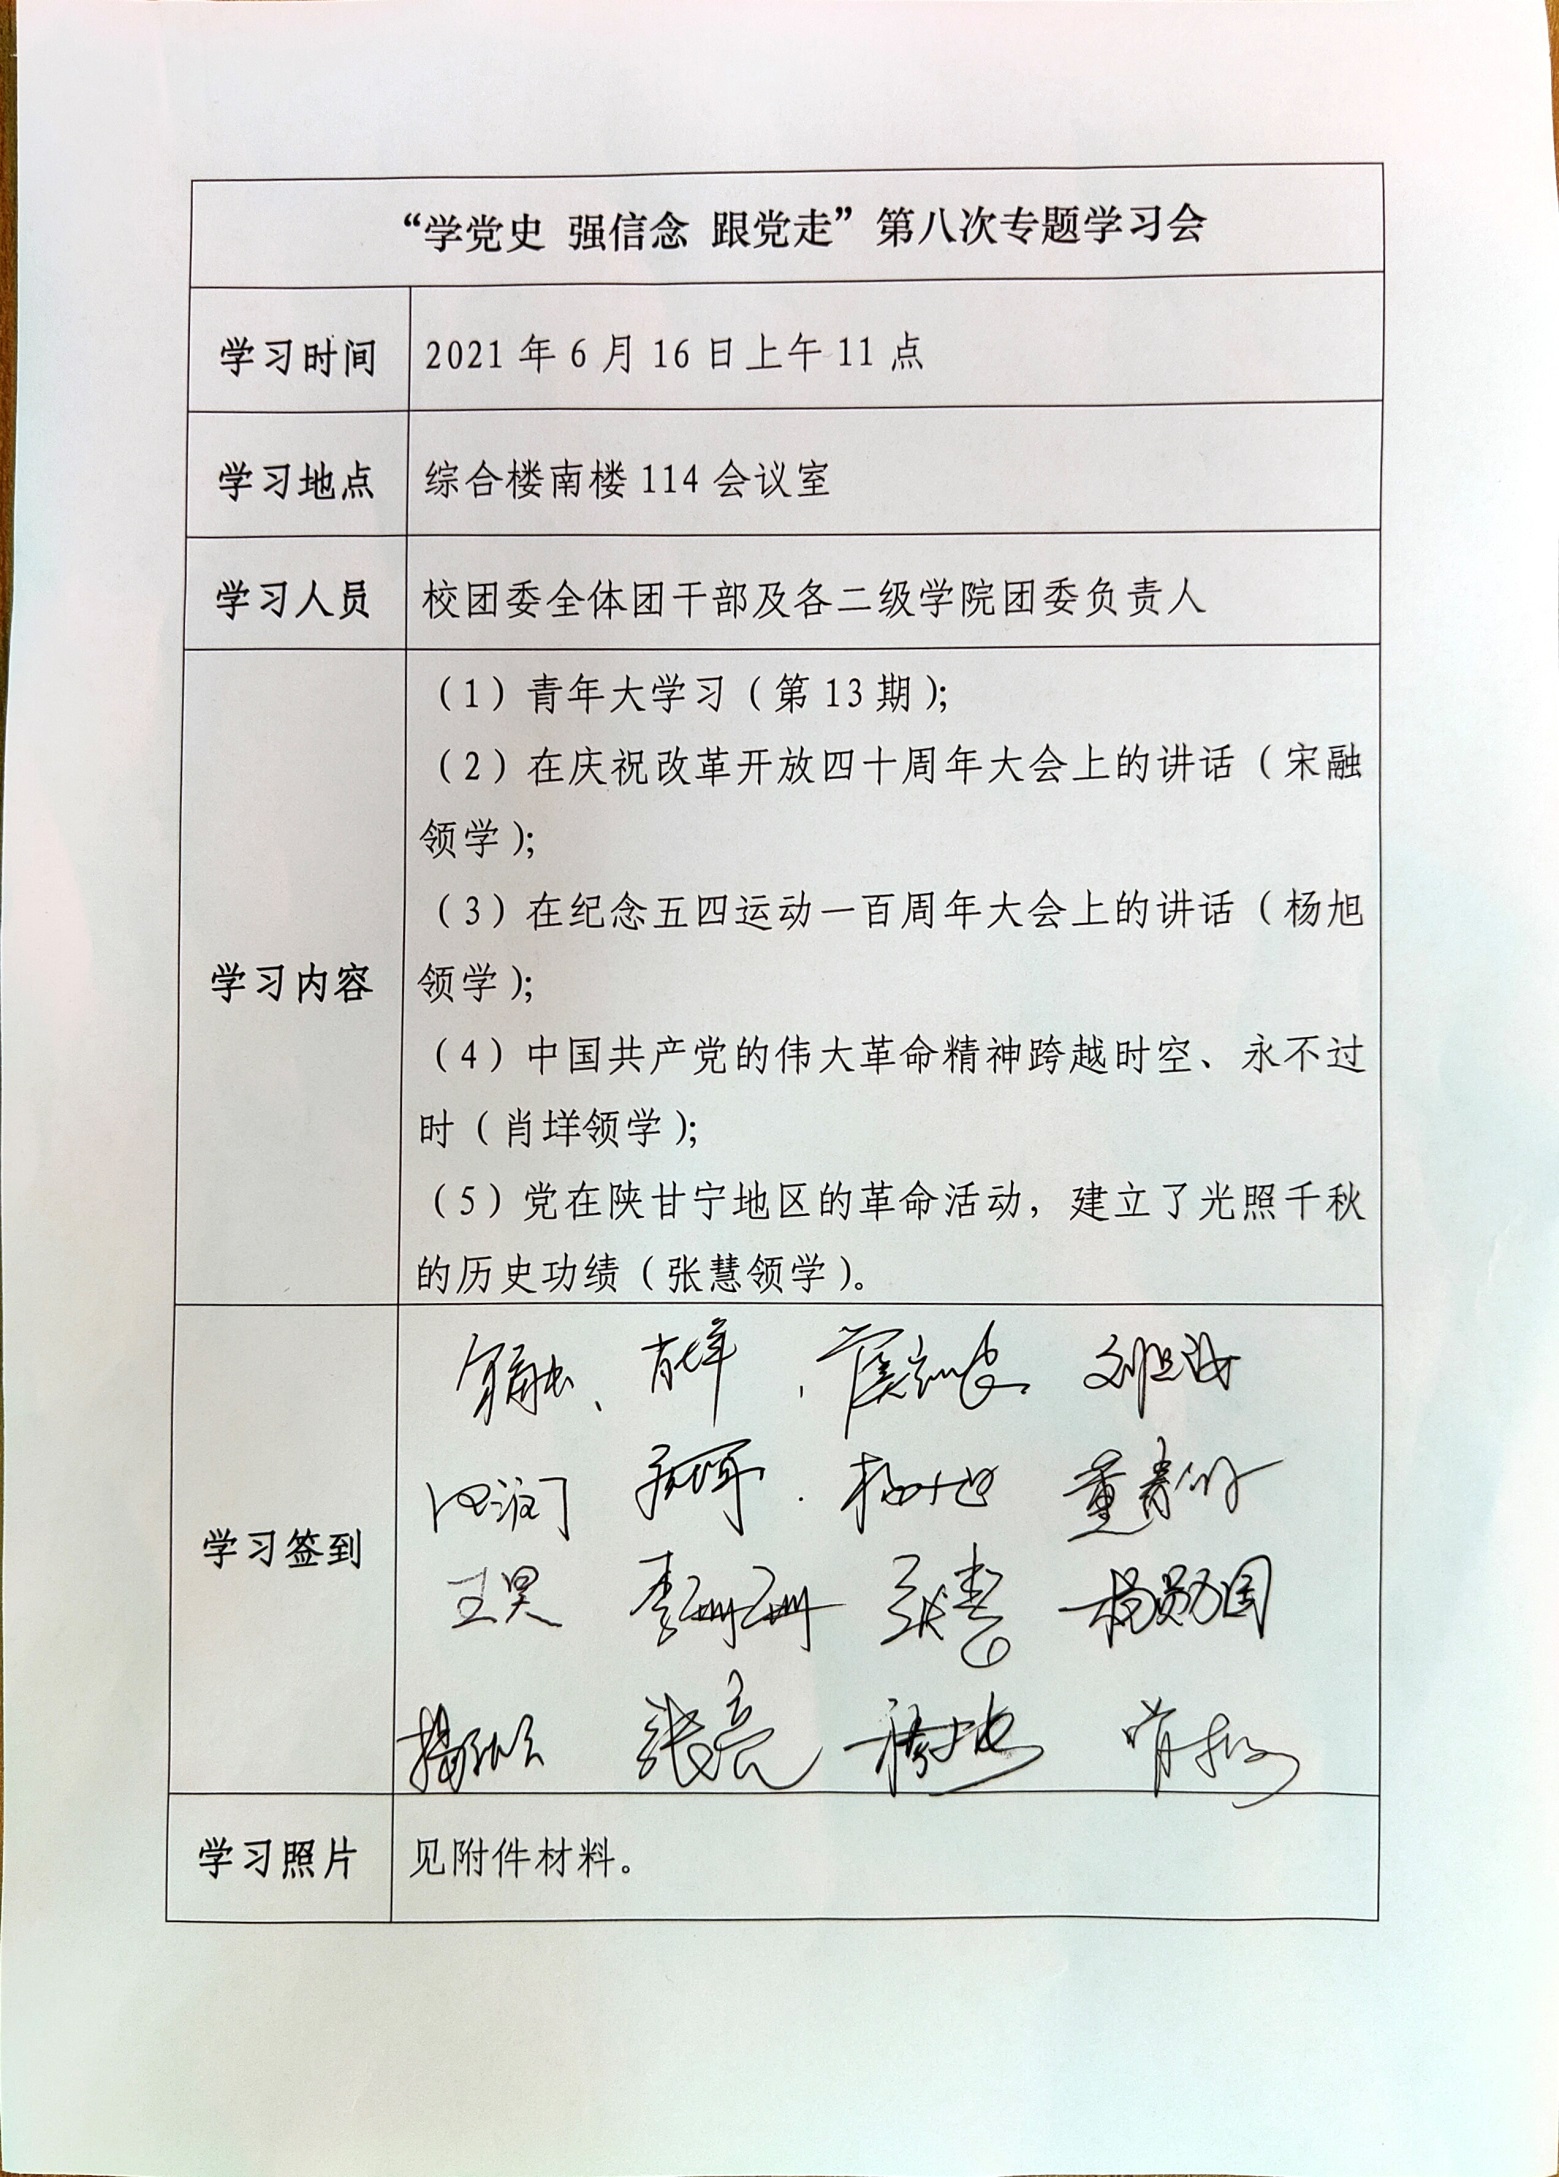 “学党史 强信念 跟党走”第八次专题学习会
学习时间 2021 年 6 月 16 日上午 11 点
学习地点 综合楼南楼 114 会议室
学习人员 校团委全体团干部及各二级学院团委负责人
（1）青年大学习（第 13 期）；
（2）在庆祝改革开放四十周年大会上的讲话（宋融
领学）；
（3）在纪念五四运动一百周年大会上的讲话（杨旭
学习内容 领学）；
（4）中国共产党的伟大革命精神跨越时空、永不过
时（肖垟领学）；
（5）党在陕甘宁地区的革命活动，建立了光照千秋
的历史功绩（张慧领学）。
宋融、肖垟
杨旭
学习签到
王昊 李珊珊 张慧 杨勋国
张亮
学习照片 见附件材料。